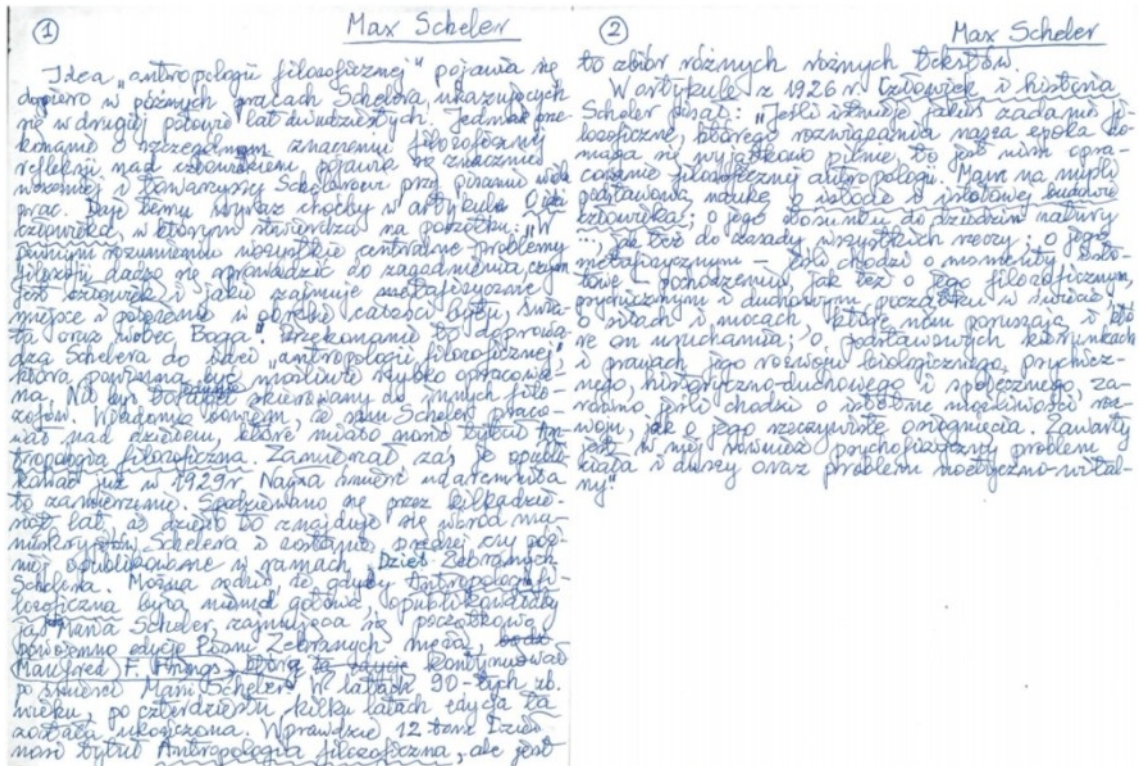 1
Max Scheler
Idea „antropologii filozoficznej" pojawia się
dopiero w późnych pracach Schelera, ukazujących
się w drugiej połowie lat dwudziestych. Jednak prze-
konanie o szczególnym znaczeniu filozoficznej
refleksji nad człowiekiem pojawia się znacznie
wcześniej i towarzyszy Schelerowi przy pisaniu wielu
prac. Daje temu wyraz choćby w artykule O idei
człowieka, w którym stwierdza na początku: „W
pewnym rozumieniu wszystkie centralne problemy
filozofii dadzą się sprowadzić do zagadnienia czym
jest człowiek i jakie zajmuje metafizyczne
miejsce i położenie w obrębie całości bytu, świa-
ta oraz wobec Boga." Przekonanie to doprowa-
dza Schelera do idei „antropologii filozoficznej",
która powinna być możliwie szybko opracowa-
na. Nie był skierowany do innych filo-
zofów. Wiadomo bowiem, że sam Scheler praco-
wał nad dziełem, które miało nosić tytuł An-
tropologia filozoficzna. Zamierzał zaś je opubli-
kować już w 1929r Nagła śmierć udaremniła
to zamierzenie. Spodziewano się przez kilkadzie-
siąt lat, że dzieło to znajduje się wśród ma-
nuskryptów Schelera i zostanie prędzej czy póź-
niej opublikowane w ramach Dzieł Zebranych
Schelera. Można sądzić, że gdyby Antropologia fi-
lozoficzna była niemal gotowa, opublikowałaby
ją Maria Scheler, zajmująca się początkową
powojenną edycją Pism Zebranych męża,
Manfred F. Frings, którą tę edycję kontynuował
po śmierci Marii Scheler. W latach 90-tych ub.
wieku, po czterdziestu kilku latach edycja ta
została ukończona. Wprawdzie 12 tom Dzieł
nosi tytuł Antropologia filozoficzna, ale jest
2
Max Scheler
to zbiór różnych różnych tekstów.
W artykule z 1926 r. Człowiek i historia
Scheler pisał: „Jeśli istnieje jakieś zadanie fi-
lozoficzne, którego rozwiązania nasza epoka do-
maga się wyjątkowo pilnie, to jest nim opra-
cowanie filozoficznej antropologii. Mam na myśli
podstawową naukę o istocie i istotowej budowie
człowieka; o jego stosunku do dziedzin natury
..., jak też do zasady wszystkich rzeczy; o jego
metafizycznym – jeśli chodzi o momenty isto-
towe – pochodzeniu, jak też o jego filozoficznym,
psychicznym i duchowym początku w świecie;
o siłach i mocach, które nim poruszają i któ-
re on uruchamia; o podstawowych kierunkach
i prawach jego rozwoju biologicznego, psychicz-
nego, historyczno-duchowego i społecznego, za-
równo jeśli chodzi o istotne możliwości roz-
woju, jak o jego rzeczywiste osiągnięcia. Zawarty
jest w niej również psychofizyczny problem
ciała i duszy oraz problem noetyczno-wital-
ny."